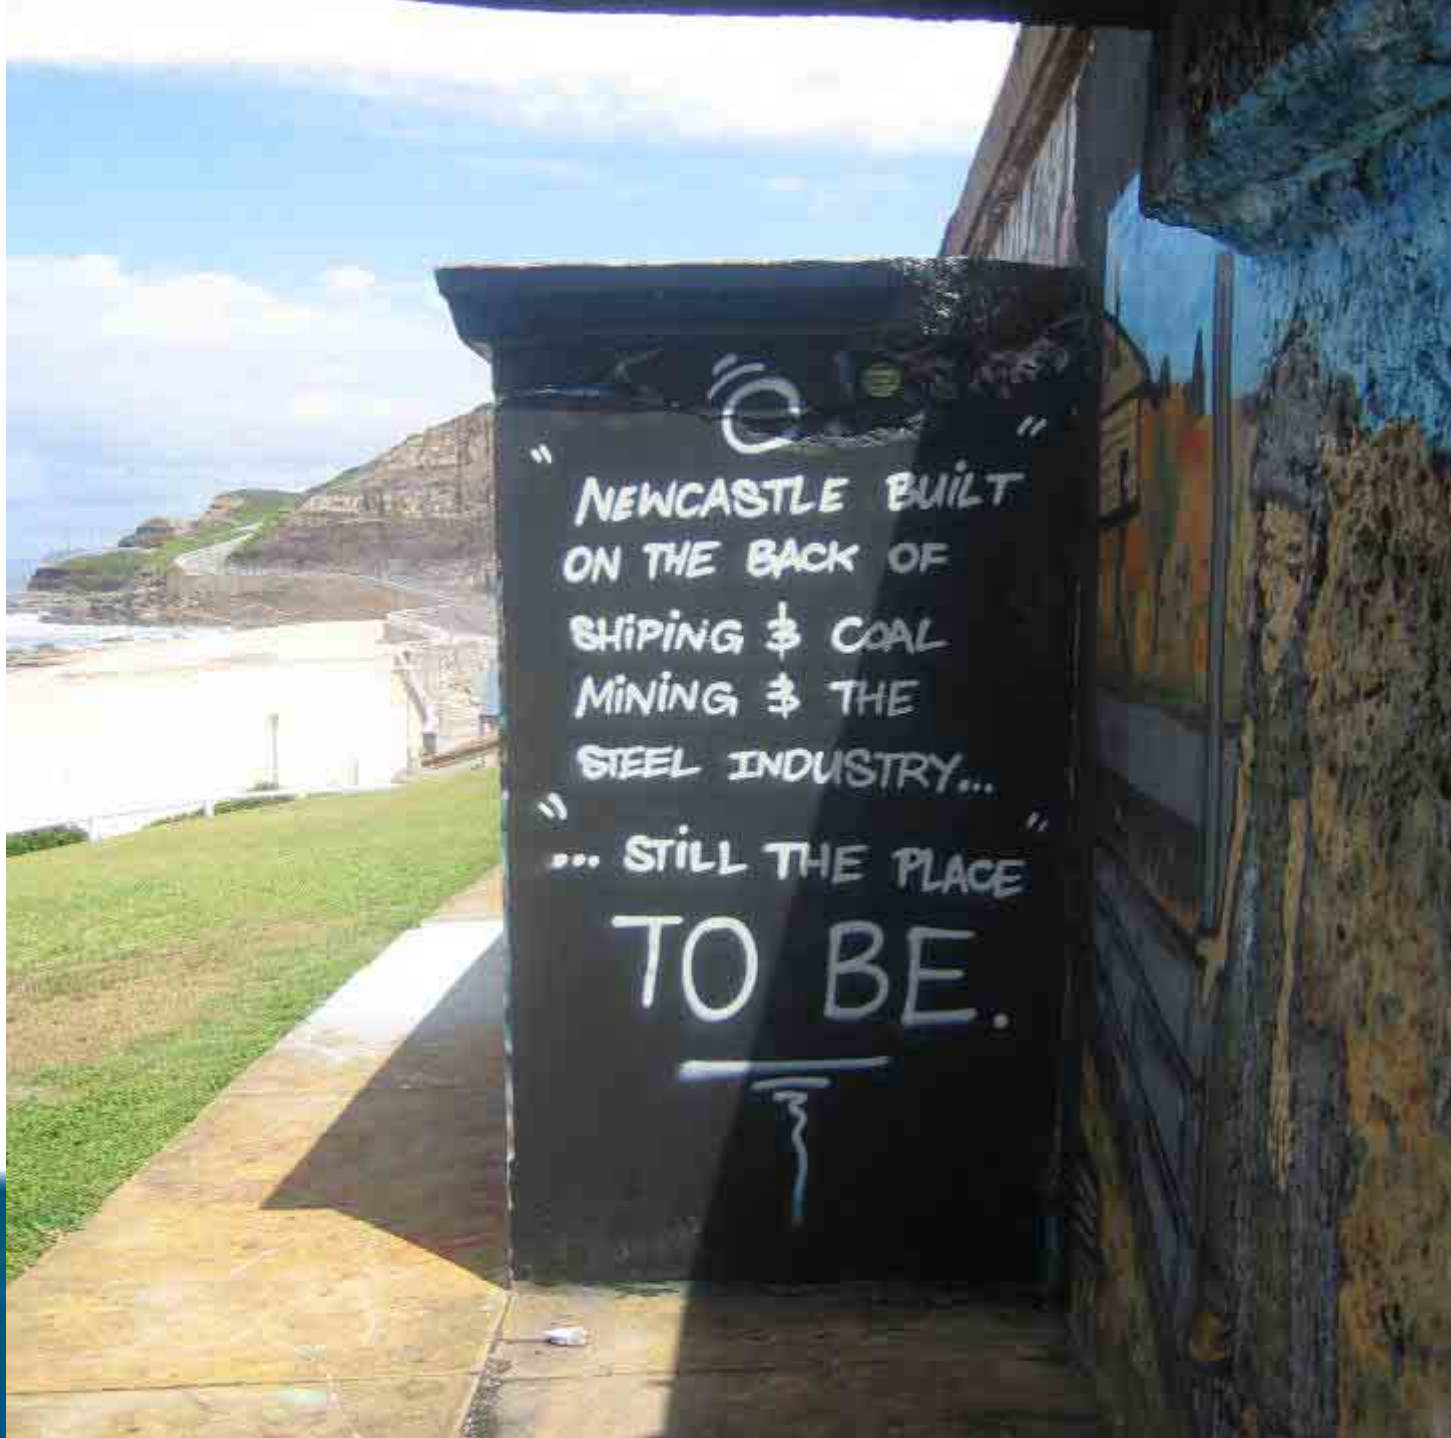 "NEWCASTLE BUILT"
ON THE BACK OF
SHIPING & COAL
MINING & THE
STEEL INDUSTRY...
"... STILL THE PLACE"
TO BE.